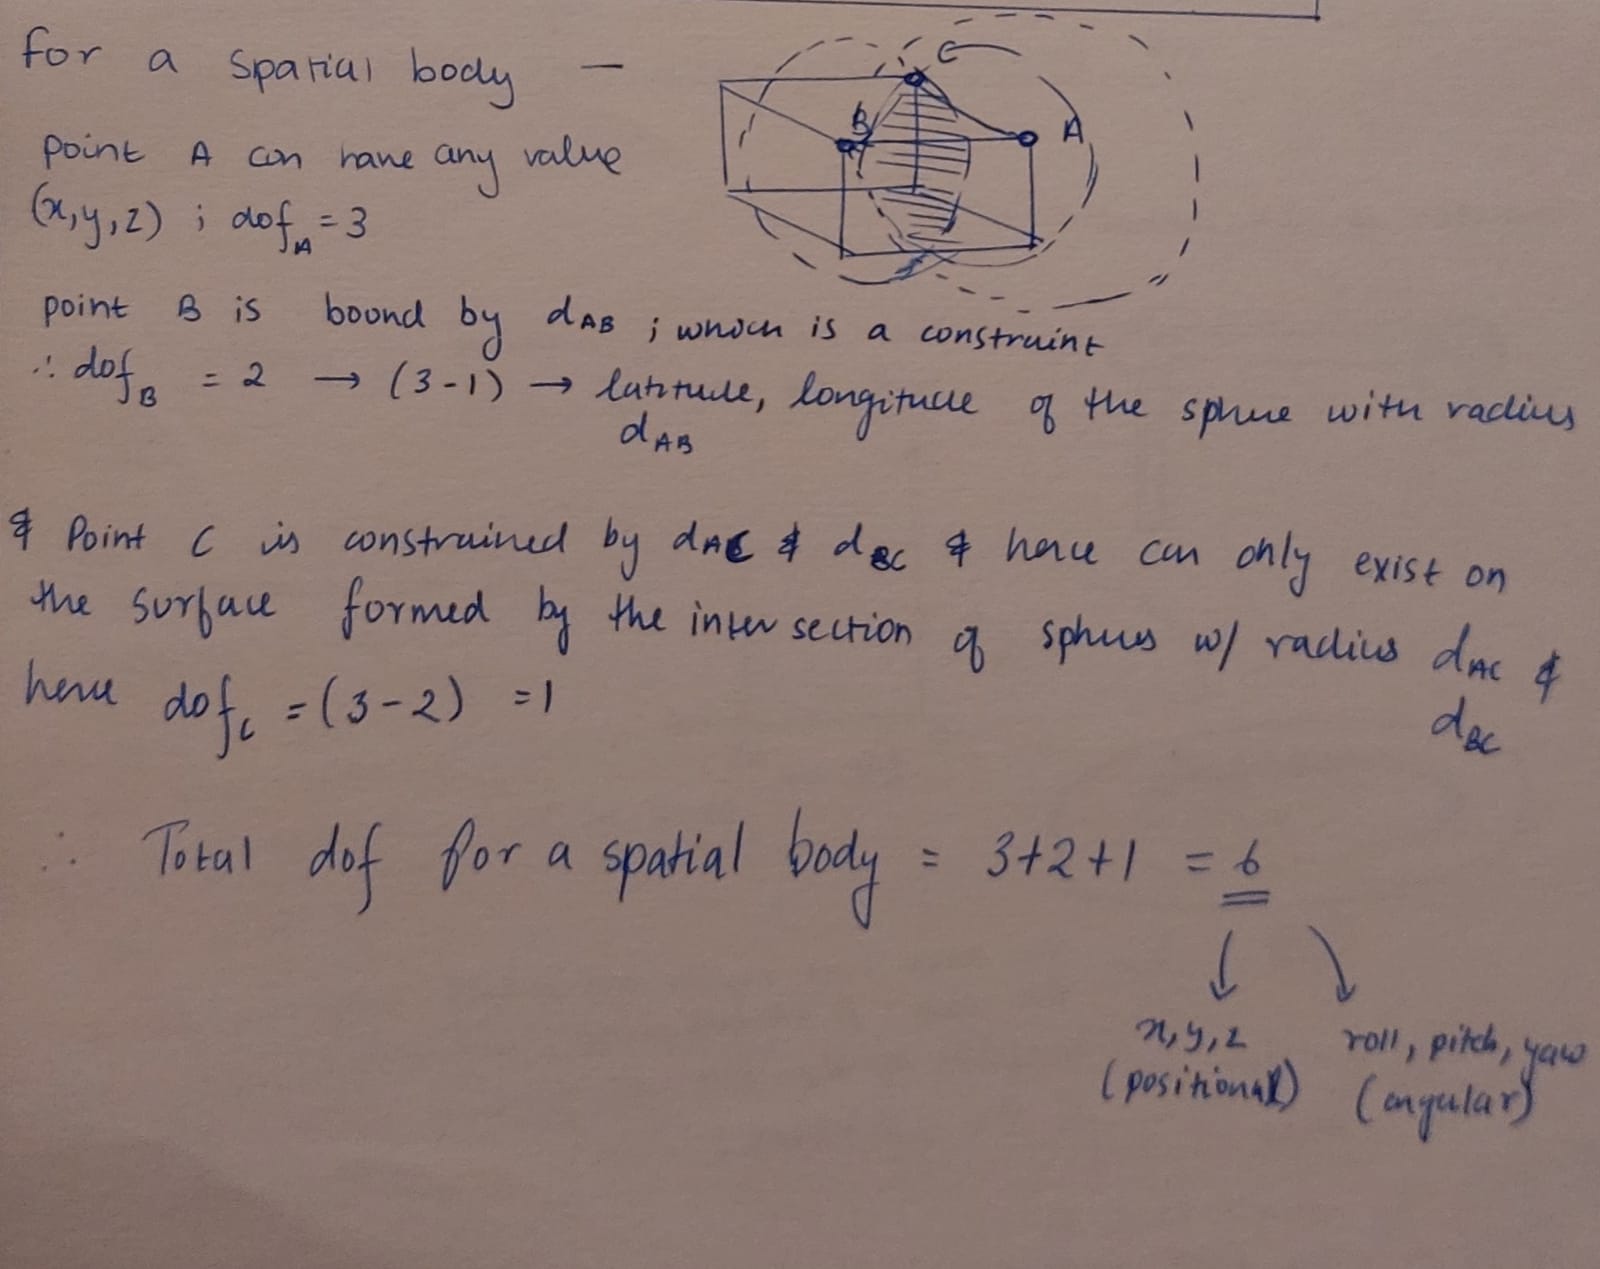 for a spatial body —
point A can have any value
(x,y,z) ; dof_A = 3
C
B
A
point B is bound by d_AB ; which is a constraint
∴ dof_B = 2 → (3-1) → latitude, longitude of the sphere with radius
d_AB
& Point C is constrained by d_AC & d_BC & hence can only exist on
the surface formed by the intersection of spheres w/ radius d_AC &
d_BC
hence dof_C = (3-2) = 1
∴ Total dof for a spatial body = 3+2+1 = 6
↓ ↘
x,y,z roll, pitch, yaw
(positional) (angular)